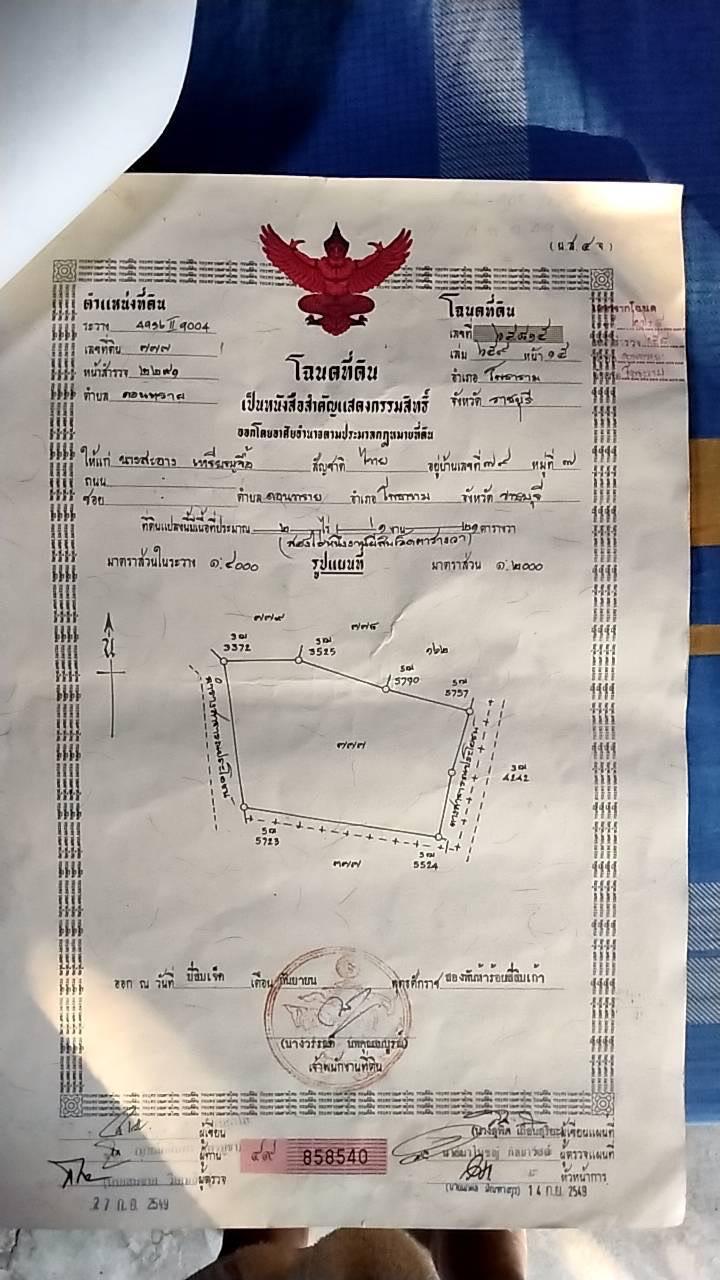 (น.ส.๔ จ)
ตำแหน่งที่ดิน
ระวาง 4936 II 9004
เลขที่ดิน ๗๗๗
หน้าสำรวจ ๒๒๗๑
ตำบล ดอนทราย
โฉนดที่ดิน
เลขที่
เล่ม ๖๕๙ หน้า ๑๕
อำเภอ โพธาราม
จังหวัด ราชบุรี
โฉนดที่ดิน
เป็นหนังสือสำคัญแสดงกรรมสิทธิ์
ออกโดยอาศัยอำนาจตามประมวลกฎหมายที่ดิน
ให้แก่ นางสะอาง สัญชาติ ไทย อยู่บ้านเลขที่ ๗๙ หมู่ที่ ๗
ถนน
ซอย ตำบล ดอนทราย อำเภอ โพธาราม จังหวัด ราชบุรี
ที่ดินแปลงนี้มีเนื้อที่ประมาณ ๒ ไร่ ๑ งาน ๒๑ ตารางวา
(สองไร่หนึ่งงานยี่สิบเอ็ดตารางวา)
มาตราส่วนในระวาง ๑:๔๐๐๐ รูปแผนที่ มาตราส่วน ๑:๒๐๐๐
๗๗๙ ๗๗๘
๑๖๒
น
3372
3525
5790
5757
๗๗๗
ทางสาธารณประโยชน์
4242
5723
5524
๓๗๗
ออก ณ วันที่ ยี่สิบเจ็ด เดือน กันยายน พุทธศักราช สองพันห้าร้อยสี่สิบเก้า
เจ้าพนักงานที่ดิน
ผู้เขียน
ผู้ทาน
ผู้ตรวจ
27 ก.ย. 2549
๔๙ 858540
ผู้เขียนแผนที่
ผู้ตรวจแผนที่
หัวหน้าการ
14 ก.ย. 2549